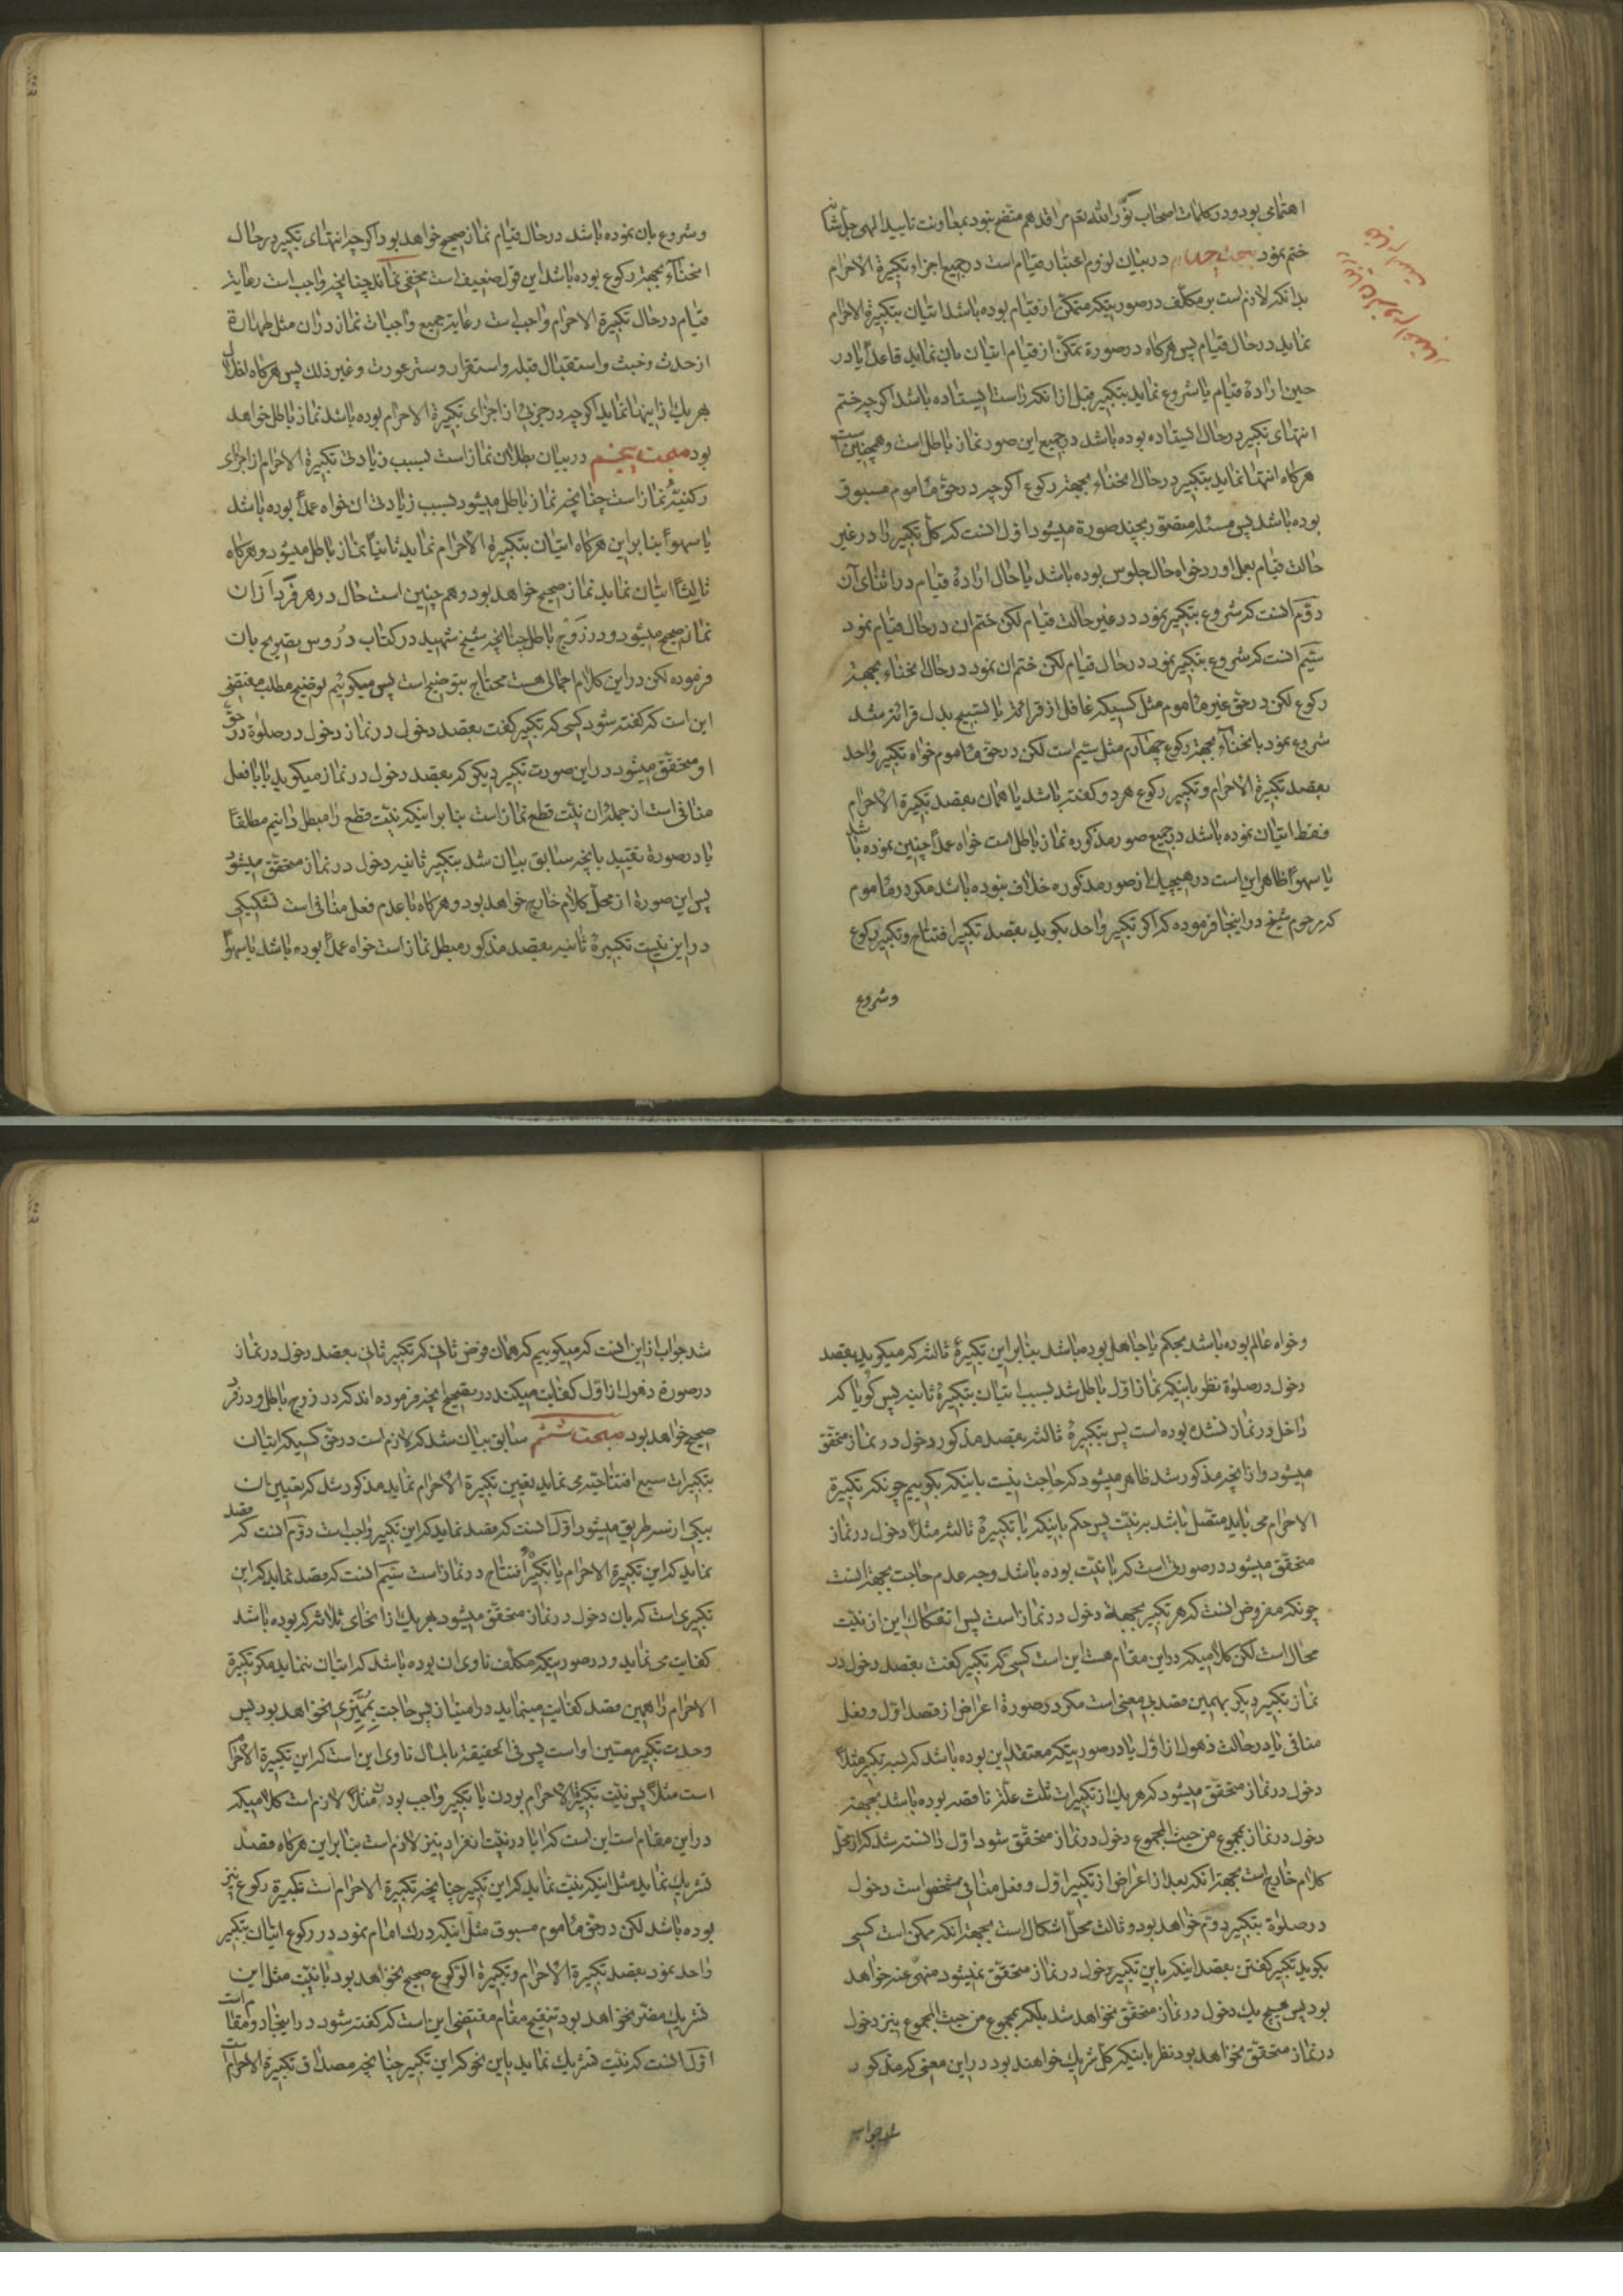 اهتمامی بود و در کلمات اصحاب نوّر الله تعم مراقدهم متضح نبود بمعاونت تایید الهی جل شانه
ختم نمود مبحث چهارم در بیان لزوم اعتبار قیام است در جمیع اجزاء تکبیرة الاحرام
بدانکه لازم است بر مکلّف در صورتیکه متمکّن از قیام بوده باشد اتیان بتکبیرة الاحرام
نماید در حال قیام پس هرکاه در صورة تمکّن از قیام اتیان بان نماید قاعدًا یا در
حین ارادهٔ قیام یا شروع نماید بتکبیر قبل از انکه راست ایستاده باشد اکرچه ختم
انتهای تکبیر در حال ایستاده بوده باشد در جمیع این صور نماز باطل است و همچنین است
هرکاه انتها نماید بتکبیر در حال انحناء بجهة رکوع اکرچه در حق ماموم مسبوق
بوده باشد پس مسئله متصوّر بچند صورة میشود اوّل انست که کلّ تکبیر را در غیر
حالت قیام بعمل اورد خواه حال جلوس بوده باشد یا حال ارادهٔ قیام در اثنای آن
دوّم انست که شروع بتکبیر نمود در غیر حالت قیام لکن ختم ان در حال قیام نمود
سیّم انست که شروع بتکبیر نمود در حال قیام لکن ختم ان نمود در حال انحناء بجهة
رکوع لکن در حقّ غیر ماموم مثل کسیکه غافل از قرائة یا تسبیح بدل قرائة شد
شروع نمود بانحناء بجهة رکوع چهارم مثل سیّم است لکن در حقّ ماموم خواه تکبیر واحد
بقصد تکبیرة الاحرام و تکبیر رکوع هر دو کفته باشد یا همان بقصد تکبیرة الاحرام
فقط اتیان نموده باشد در جمیع صور مذکوره نماز باطل است خواه عمدًا چنین نموده باشد
یا سهوًا ظاهر این است در هیچیک از صور مذکوره خلاف نبوده باشد مکر در ماموم
که مرحوم شیخ در اینجا فرموده که اکر تکبیر واحد بکوید بقصد تکبیر افتتاح و تکبیر رکوع
و شروع
و شروع بان نموده باشد در حال قیام نماز صحیح خواهد بود اکرچه انتهای تکبیر در حال
انحناء بجهة رکوع بوده باشد این قول ضعیف است مخفی نماند چنانچه واجب است رعایة
قیام در حال تکبیرة الاحرام واجب است رعایة جمیع واجبات نماز در ان مثل طهارة
از حدث و خبث و استقبال قبله و استقرار و ستر عورت و غیر ذلک پس هرکاه اخلال
بهر یک از اینها نماید اکرچه در جزئی از اجزای تکبیرة الاحرام بوده باشد نماز باطل خواهد
بود مبحث پنجم در بیان بطلان نماز است بسبب زیادتی تکبیرة الاحرام از اجزای
رکنیّهٔ نماز است چنانچه نماز باطل میشود بسبب زیادتی ان خواه عمدًا بوده باشد
یا سهوًا بنا بر این هرکاه اتیان بتکبیرة الاحرام نماید ثانیًا نماز باطل میشود و هرکاه
ثالثًا اتیان نماید نماز صحیح خواهد بود و همچنین است حال در هر فرد از ان
نماز صحیح میشود و در زوج باطل چنانچه شیخ شهید در کتاب دروس تصریح بان
فرموده لکن در این کلام اجمالی هست محتاج بتوضیح است پس میکوئیم توضیح مطلب مقتضی
این است که کفته شود کسی که تکبیر کفت بقصد دخول در نماز دخول در صلوة در حقّ
او متحقّق میشود در این صورت تکبیر دیکر که بقصد دخول در نماز میکوید یا با فعل
منافی است از جملهٔ ان نیّت قطع نماز است بنا بر اینکه نیّت قطع را مبطل دانیم مطلقًا
یا در صورة تقیید بانچه سابق بیان شد بتکبیر ثانیه دخول در نماز متحقّق میشود
پس این صورة از محلّ کلام خارج خواهد بود و هرکاه با عدم فعل منافی است تشکیکی
در این نیست تکبیرهٔ ثانیه بقصد مذکور مبطل نماز است خواه عمدًا بوده باشد یا سهوًا
و خواه عالم بوده باشد بحکم یا جاهل بوده باشد بنا بر این تکبیرهٔ ثالثه که میکوید بقصد
دخول در صلوة نظر باینکه نماز اوّل باطل شد بسبب اتیان بتکبیرهٔ ثانیه پس کویا که
داخل در نماز نشده بوده است پس بتکبیرهٔ ثالثه بقصد مذکور دخول در نماز متحقّق
میشود و از انچه مذکور شد ظاهر میشود که حاجت نیست باینکه بکوییم چونکه تکبیرة
الاحرام می باید متصل باشد بر نیّت پس حکم باینکه با تکبیرهٔ ثالثه مثلًا دخول در نماز
متحقّق میشود در صورتی است که با نیّت بوده باشد وجه عدم حاجت بجهة انست
چونکه مفروض انست که هر تکبیر بجهة دخول در نماز است پس انفکاک این از نیّت
محال است لکن کلامیکه در این مقام هست این است کسی که تکبیر کفت بقصد دخول در
نماز تکبیر دیکر بهمین قصد بی معنی است مکر در صورة اعراض از قصد اوّل و فعل
منافی یا در حالت ذهول از اوّل یا در صورتیکه معتقد این بوده باشد که سه تکبیر مثلًا
دخول در نماز متحقّق میشود که هر یک از تکبیرات ثلث علّة ناقصه بوده باشد بجهة
دخول در نماز بمجموع من حیث المجموع دخول در نماز متحقّق شود اوّل دانسته شد که از محلّ
کلام خارج است بجهة انکه بعد از اعراض از تکبیر اوّل و فعل منافی مشخص است دخول
در صلوة بتکبیر دوّم خواهد بود و ثالث محلّ اشکال است بجهة انکه ممکن است کسی
بکوید تکبیر کفتن بقصد اینکه باین تکبیر دخول در نماز متحقّق نمیشود منهی عنه خواهد
بود پس هیچ یک دخول در نماز متحقّق نخواهد شد بلکه بمجموع من حیث المجموع نیز دخول
در نماز متحقّق نخواهد بود نظر باینکه کلّ شریک خواهند بود در این معنی که مذکور
شد جواب
شد جواب از این انست که میکوییم که همان فرض ثانی که تکبیر ثانی بقصد دخول در نماز
در صورة ذهول از اوّل کفایت میکند در تصحیح انچه فرموده اند که در زوج باطل و در فرد
صحیح خواهد بود مبحث ششم سابق بیان شد که لازم است در حق کسیکه اتیان
بتکبیرات سبع افتتاحیّه می نماید تعیین تکبیرة الاحرام نماید مذکور شد که تعیین بان
بیکی از سه طریق میشود اوّل انست که قصد نماید که این تکبیر واجب است دوّم انست که قصد
نماید که این تکبیرة الاحرام یا تکبیر افتتاح در نماز است سیّم انست که قصد نماید که این
تکبیری است که بان دخول در نماز متحقّق میشود بهر یک از انحای ثلاثه که بوده باشد
کفایت می نماید و در صورتیکه مکلّف ناوی ان بوده باشد که اتیان ننماید مکر تکبیرة
الاحرام را همین قصد کفایت مینماید در امتیاز پس حاجت بممیّزی نخواهد بود پس
وحدت تکبیر معیّن او است پس فی الحقیقة بالمآل ناوی این است که این تکبیرة الاحرام
است مثلًا پس نیّت تکبیرة الاحرام بودن یا تکبیر واجب بودن مثلًا لازم است کلامیکه
در این مقام است این است که ایا در نیّت انفراد نیز لازم است بنا بر این هرکاه قصد
تشریک نماید مثل اینکه نیّت نماید که این تکبیر چنانچه تکبیرة الاحرام است تکبیرة رکوع نیز
بوده باشد لکن در حقّ ماموم مسبوق مثل اینکه درک امام نمود در رکوع اتیان بتکبیر
واحد نمود بقصد تکبیرة الاحرام و تکبیرة الرکوع صحیح نخواهد بود یا نیّت مثل این
تشریک مضرّ نخواهد بود تنقیح مقام مقتضی این است که کفته شود در اینجا دو مقام است
اوّل انست که نیّت تشریک نماید باین نحو که این تکبیر چنانچه مصداق تکبیرة الاحرام است